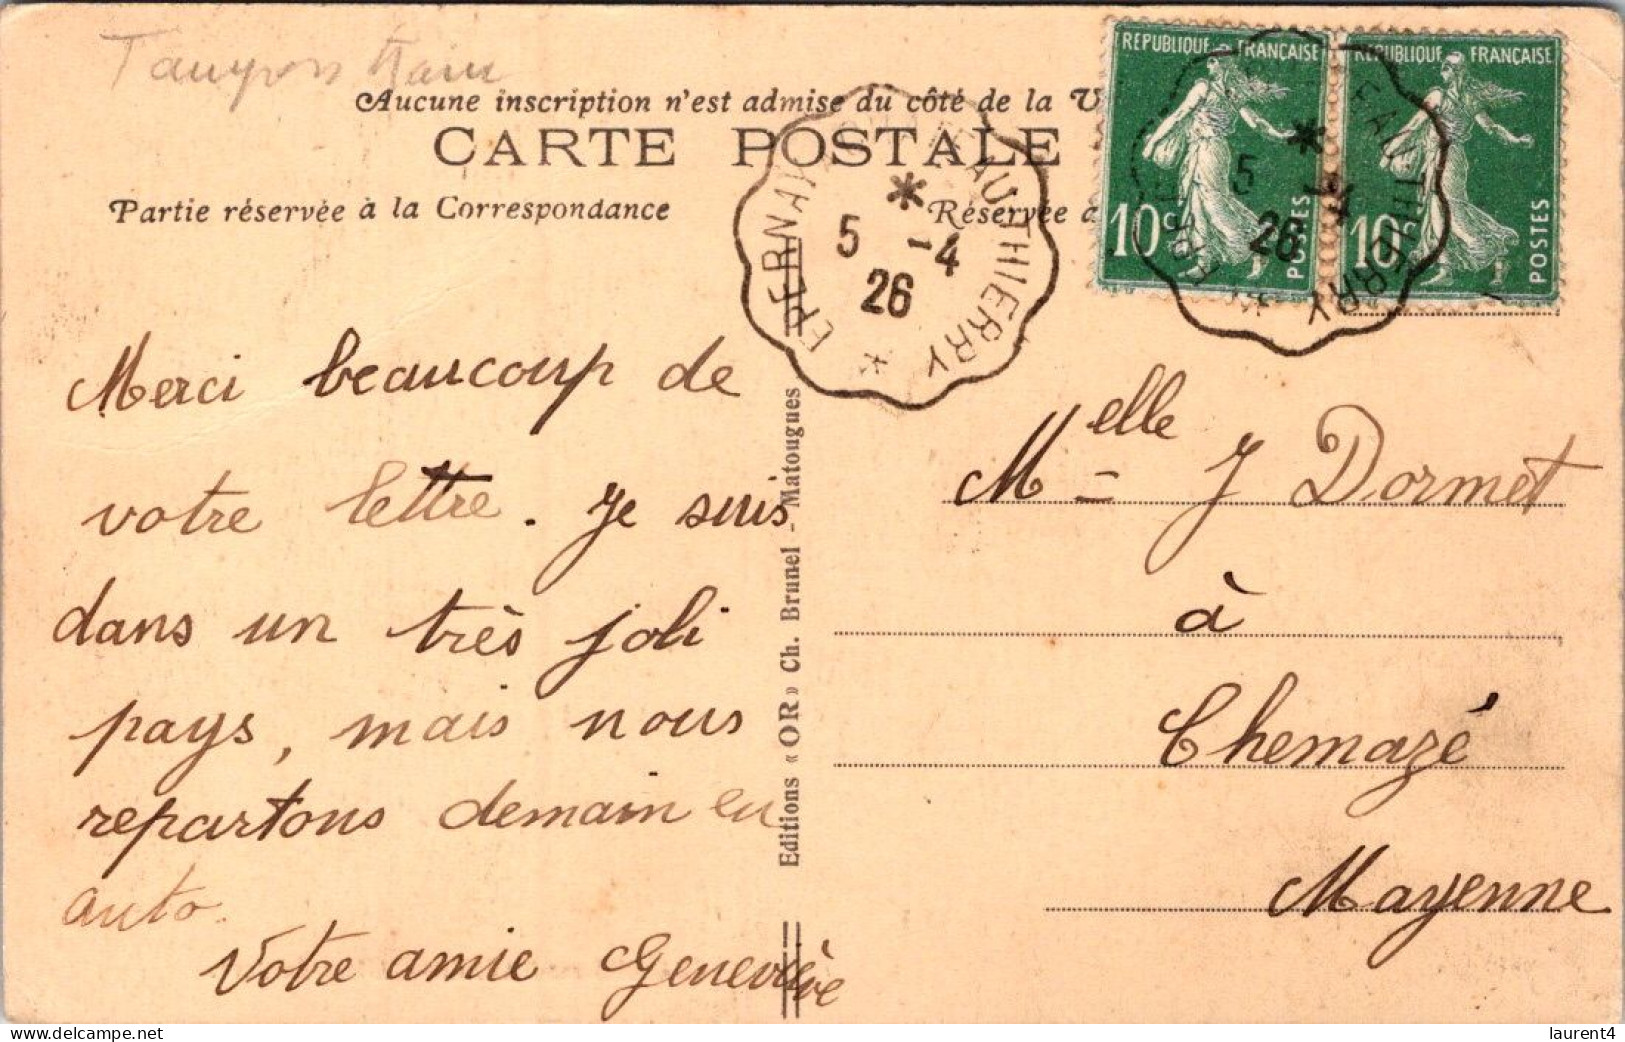 Aucune inscription n'est admise du côté de la V
CARTE POSTALE
Partie réservée à la Correspondance
Réservée a
RÉPUBLIQUE FRANÇAISE
10c POSTES
RÉPUBLIQUE FRANÇAISE
10c POSTES
EPERNAY THIERRY
5 -4
26
5 -4
26
THIERRY
Merci beaucoup de
votre lettre. Je suis
dans un très joli
pays, mais nous
repartons demain en
auto.
Votre amie Geneviève
Editions « OR » Ch. Brunel - Matougues
Melle J Dormet
à
Chemazé
Mayenne
www.delcampe.net
laurent4